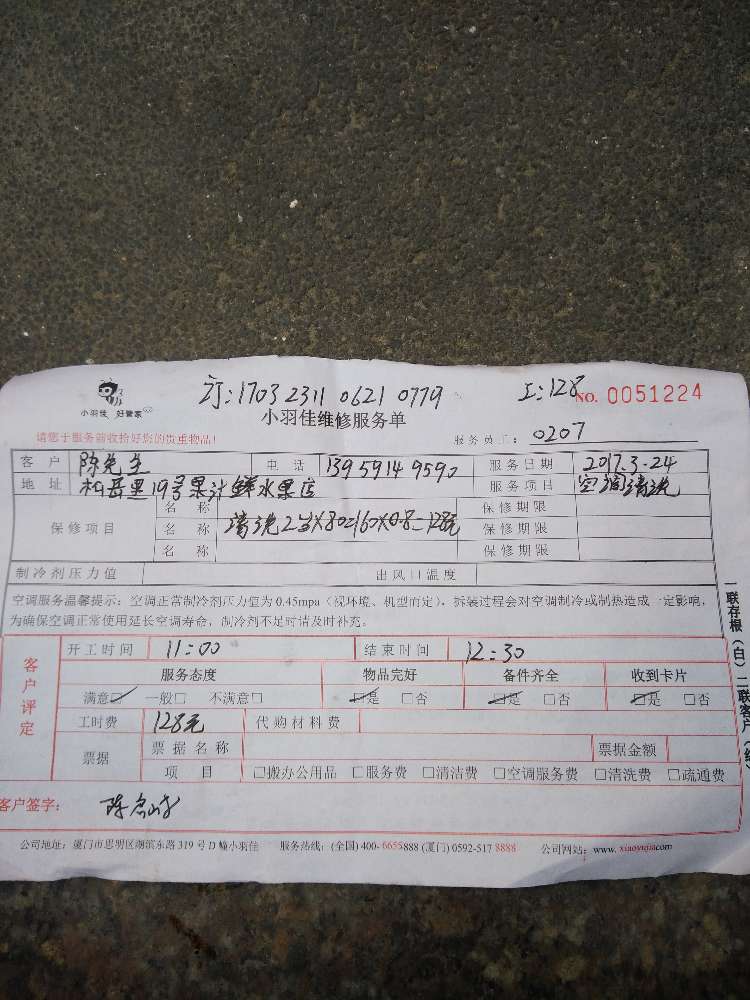 订:1703 2311 0621 0779 工:128 NO. 0051224
小羽佳 好管家
小羽佳维修服务单
请您于服务前收拾好您的贵重物品! 服务员工: 0207
客户 陈先生 电话 13959149590 服务日期 2017.3.24
地址 19号果汁鲜水果店 服务项目 空调清洗
保修项目 名称 保修期限
名称 清洗2台X80=160X0.8=128元 保修期限
名称 保修期限
制冷剂压力值 出风口温度
空调服务温馨提示: 空调正常制冷剂压力值为0.45mpa(视环境、机型而定),拆装过程会对空调制冷或制热造成一定影响,
为确保空调正常使用延长空调寿命,制冷剂不足时请及时补充。
客户评定
开工时间 11:00 结束时间 12:30
服务态度 物品完好 备件齐全 收到卡片
满意☑ 一般□ 不满意□ ☑是 □否 ☑是 □否 ☑是 □否
工时费 128元 代购材料费
票据 票据名称 票据金额
项目 □搬办公用品 □服务费 □清洁费 □空调服务费 □清洗费 □疏通费
客户签字:
公司地址: 厦门市思明区湖滨东路319号D幢小羽佳 服务热线: (全国)400-6655888 (厦门)0592-5178888 公司网站: www. xiaoyujia.com
一联存根(白) 二联客户